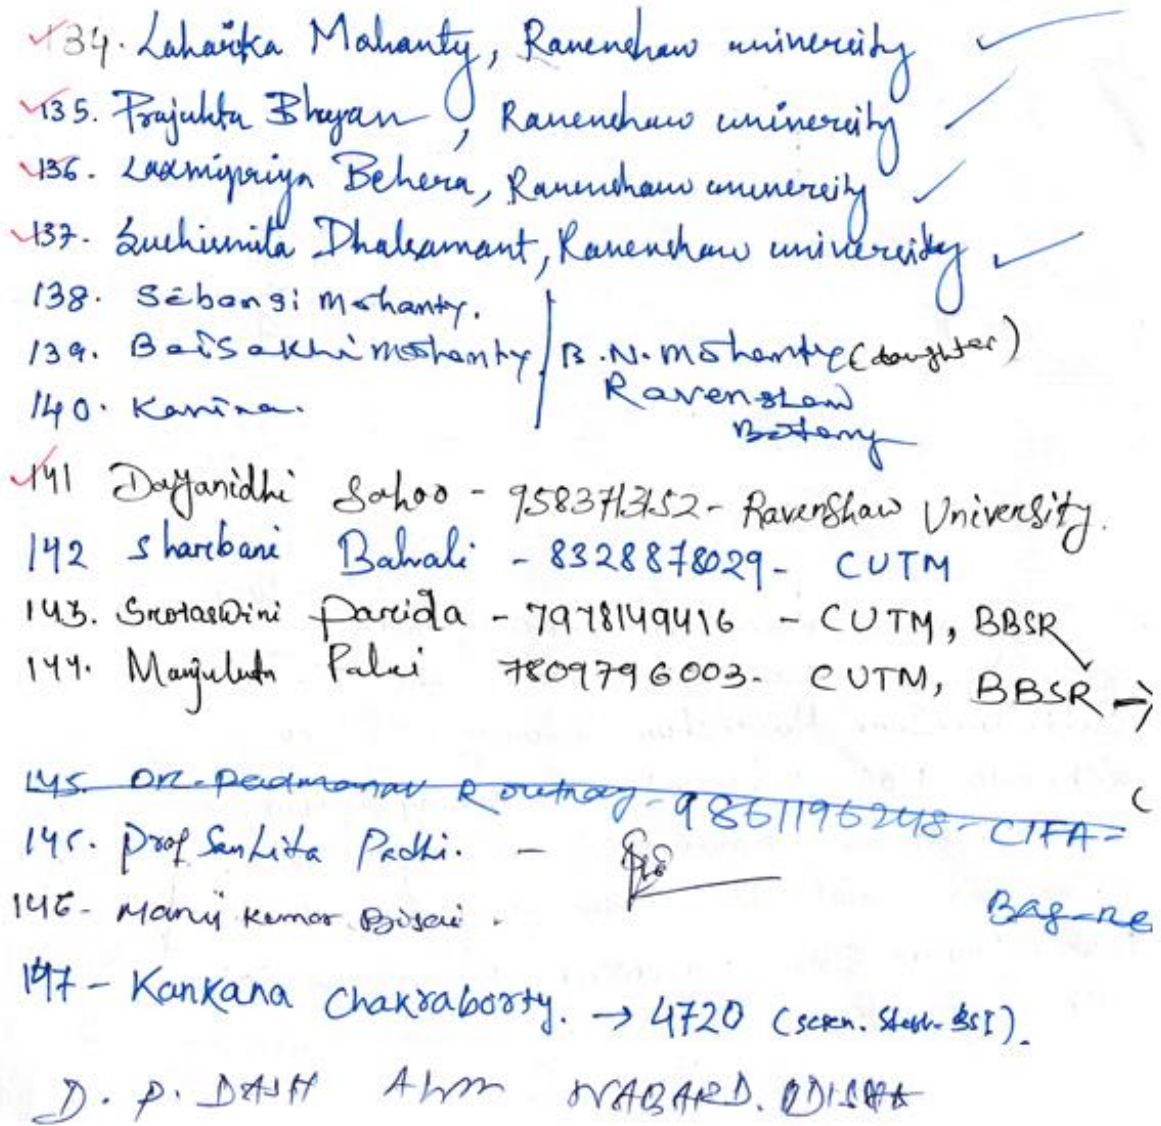 134. Laharika Mohanty, Ravenshaw university
135. Prajukta Bhuyan, Ravenshaw university
136. Laxmipriya Behera, Ravenshaw university
137. Suchismita Dhalsamant, Ravenshaw university
138. Sebangi Mohanty.
139. Baisakhi Mohanty / B.N. Mohanty (daughter)
140. Kanina. Ravenshaw
Botany
141 Dayanidhi Sahoo - 9583713152 - Ravenshaw University.
142 Sharbani - 8328878029 - CUTM
143. Srotaswini Parida - 7978149416 - CUTM, BBSR
144. Manjulata Palei 7809796003. CUTM, BBSR →
145. DR. Padmanav Routray - 9861196248 - CIFA -
145. Prof Sanhita Padhi. -
146 - Kumar .
147 - Kankana Chakraborty. → 4720 (BSI).
D. P. DASH NABARD. ODISHA